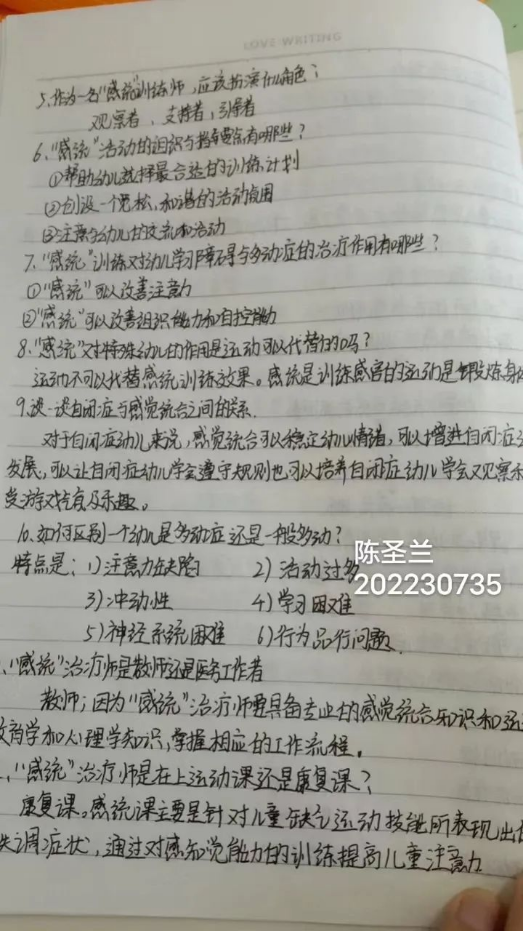 LOVE WRITING
5.作为一名"感统"训练师,应该扮演什么角色?
观察者、支持者,引导者
6."感统"活动的组织与指导要点有哪些?
①帮助幼儿选择最合适的训练计划
②创设一个宽松,和谐的活动氛围
③注意与幼儿的交流和活动
7."感统"训练对幼儿学习障碍与多动症的治疗作用有哪些?
①"感统"可以改善注意力
②"感统"可以改善组织能力和自控能力
8."感统"对特殊幼儿的作用是运动可以代替的吗?
运动不可以代替感统训练效果。感统是训练感官的运动是锻炼身体
9.谈一谈自闭症与感觉统合之间的关系.
对于自闭症幼儿来说,感觉统合可以稳定幼儿情绪,可以增进自闭症
发展,可以让自闭症幼儿学会遵守规则也可以培养自闭症幼儿学会观察和
受游戏及乐趣。
10.如何区别一个幼儿是多动症还是一般多动?
特点是:1)注意力缺陷 2)活动过多
3)冲动性 4)学习困难
5)神经系统困难 6)行为品行问题.
陈圣兰
202230735
."感统"治疗师是教师还是医务工作者
教师;因为"感统"治疗师要具备专业的感觉统合知识和运
教育学和心理学知识,掌握相应的工作流程。
."感统"治疗师是在上运动课还是康复课?
康复课。感统课主要是针对儿童缺乏运动技能所表现出的
失调症状,通过对感知觉能力的训练提高儿童注意力